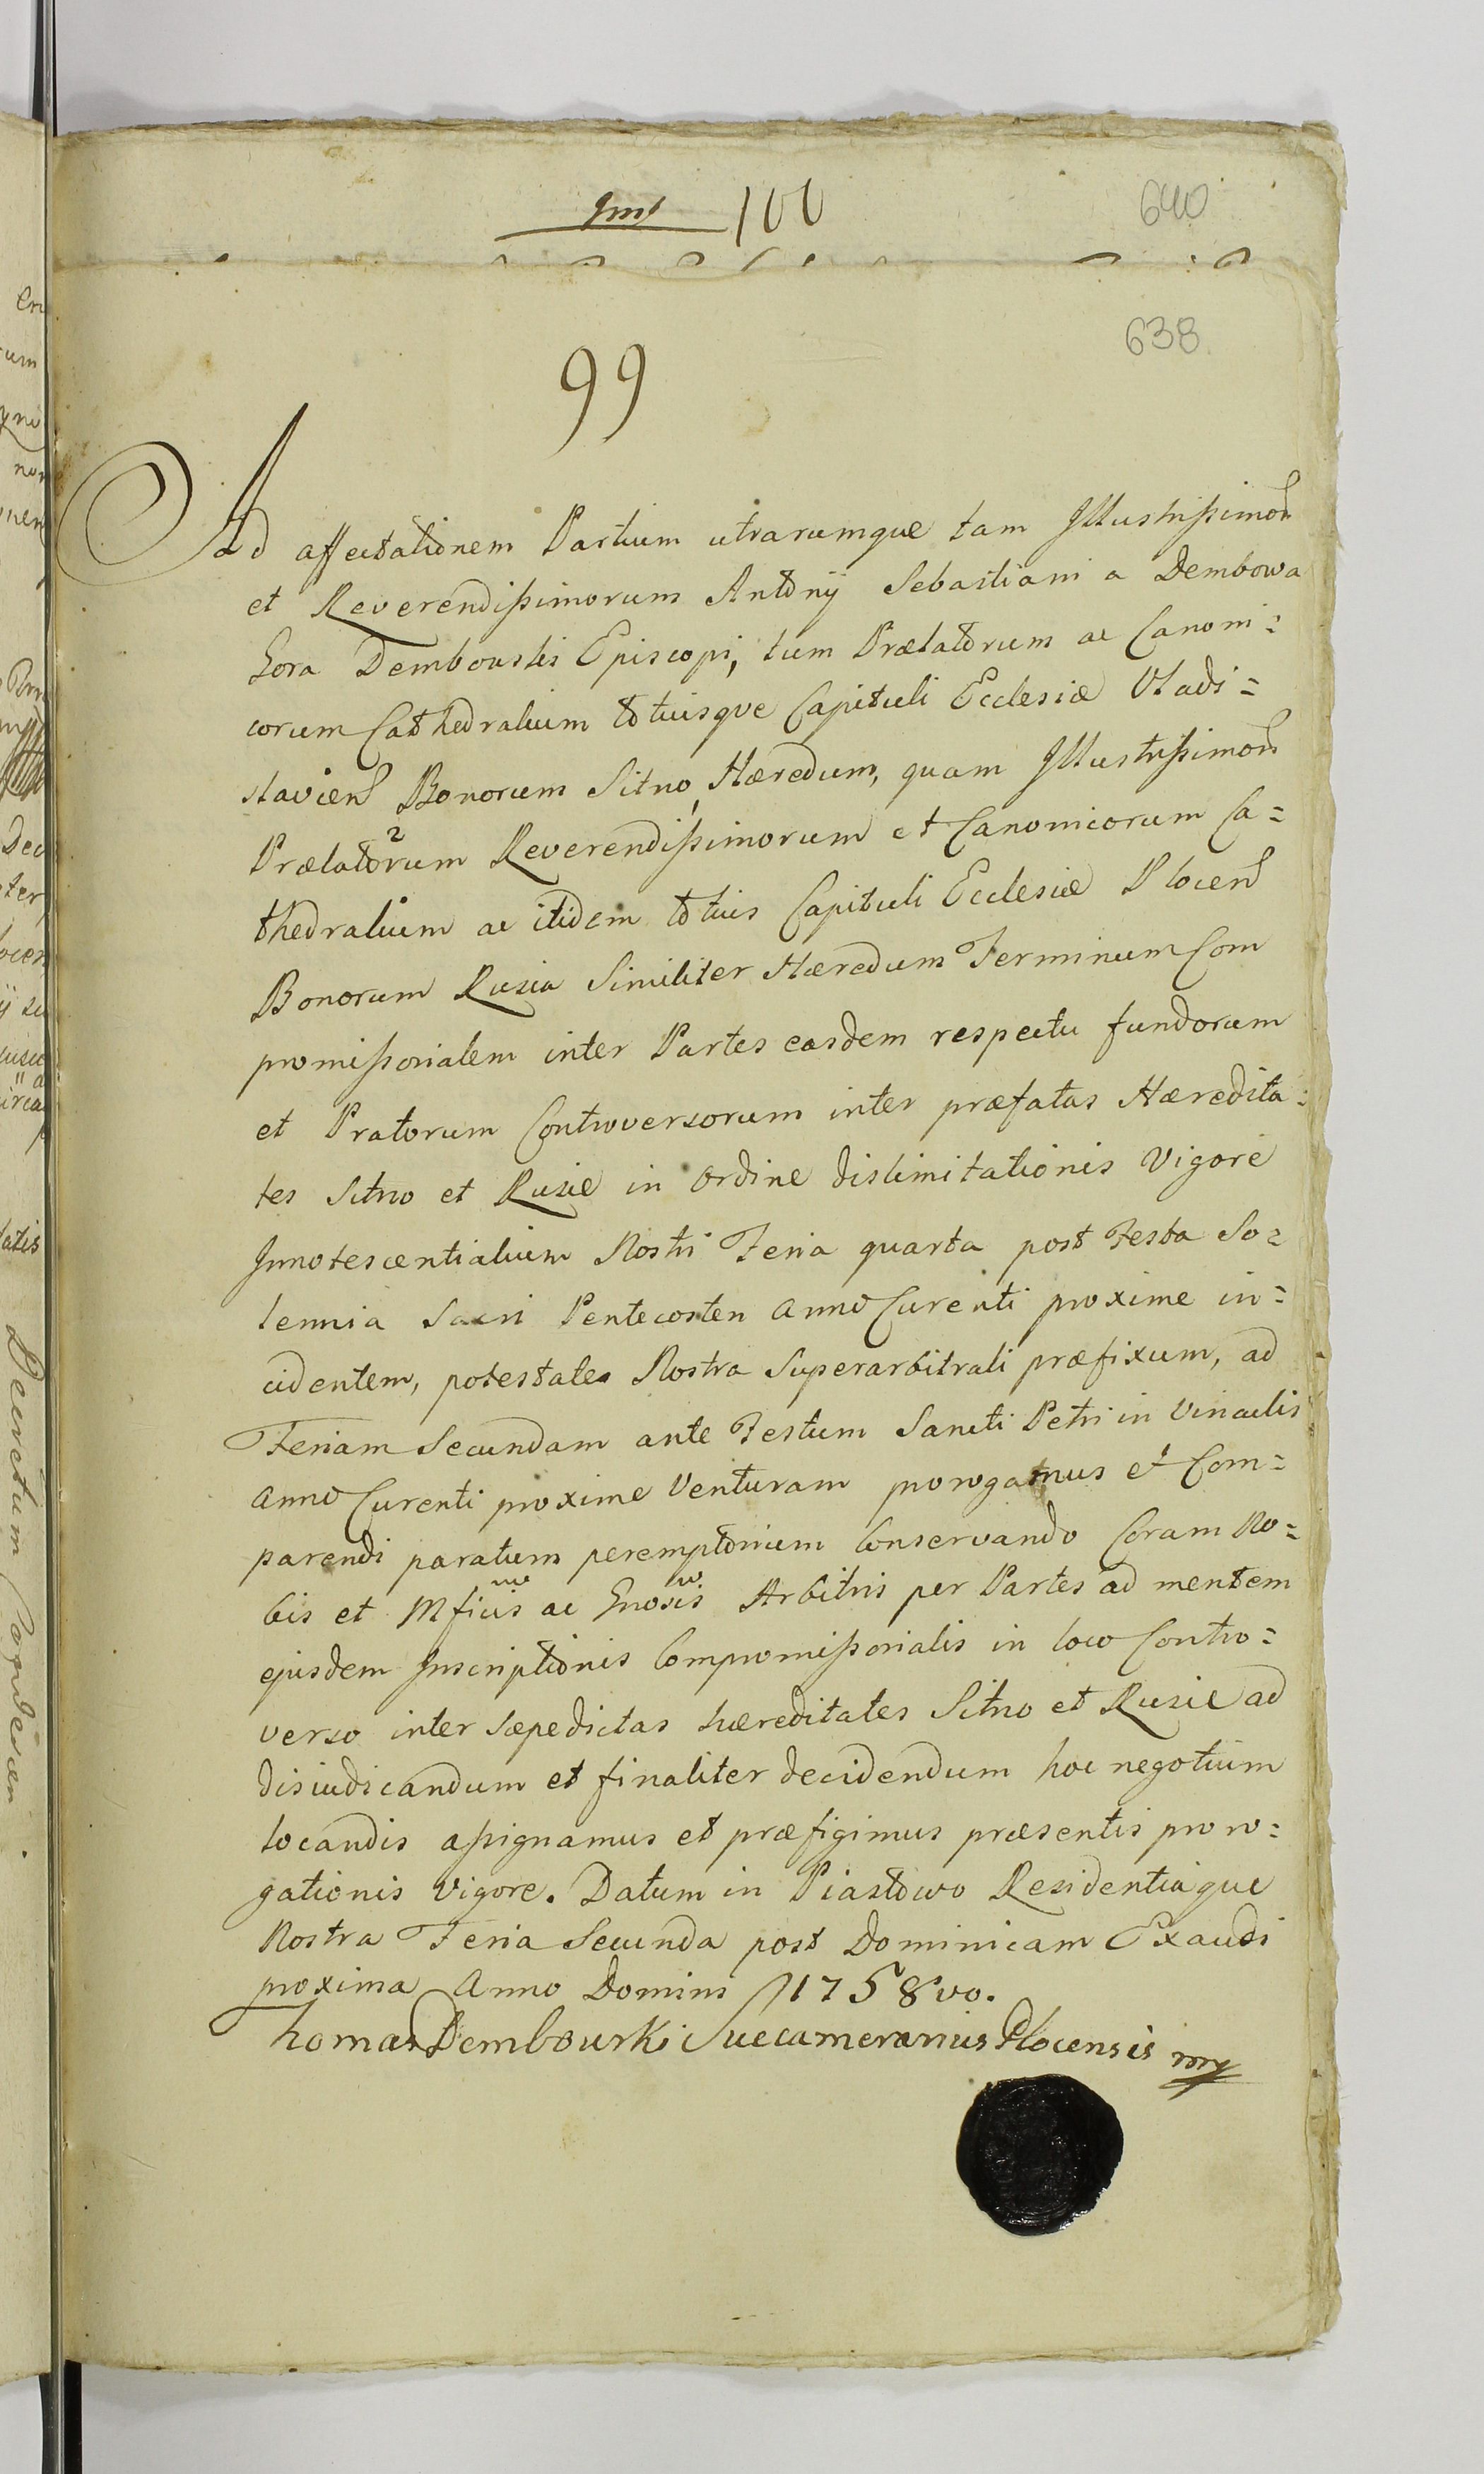 100
640
638
99
Ad affectationem Partium utrarumque tam Illustrissimor
et Reverendissimorum Antonij Sebastiani a Dembowa
Gora Dembowskis Episcopi, tum Prælatorum ac Canoni=
corum Cathedralium totiusque Capituli Ecclesiæ Vladi=
slaviens Bonorum Sitno, Hæredum, quam Illustrissimor
Prælatorum Reverendissimorum et Canonicorum Ca=
thedralium ac itidem totius Capituli Ecclesiæ Plocens
Bonorum Rusia Similiter Hæredum Terminum Com
promissorialem inter Partes easdem respectu fundorum
et Pratorum Controversorum inter præfatas Hæredita=
tes Sitno et Rusie in ordine dislimitationis Vigore
Innotescentialium Nostri Feria quarta post Festa So=
lennia Sacri Pentecosten Anno Curenti proxime in=
cidentem, potestate Nostra Superarbitrali præfixum, ad
Feriam Secundam ante Festum Sancti Petri in Vinculis
Anno Curenti proxime Venturam prorogamus et Com=
parendi paratum peremptorium Conservando Coram No=
bis et Mficis ac Gnosis Arbitris per Partes ad mentem
ejusdem Inscriptionis Compromissorialis in loco Contro=
verso inter sæpedictas hæreditates Sitno et Rusie ad
disiudicandum et finaliter decidendum hoc negotium
locandis assignamus et præfigimus præsentis proro=
gationis vigore. Datum in Piastowo Residentiaque
Nostra Feria Secunda post Dominicam Exaudi
proxima Anno Domini 1758vo.
Thomas Dembowski Succamerarius Plocensis mp
Decretum Condescen.